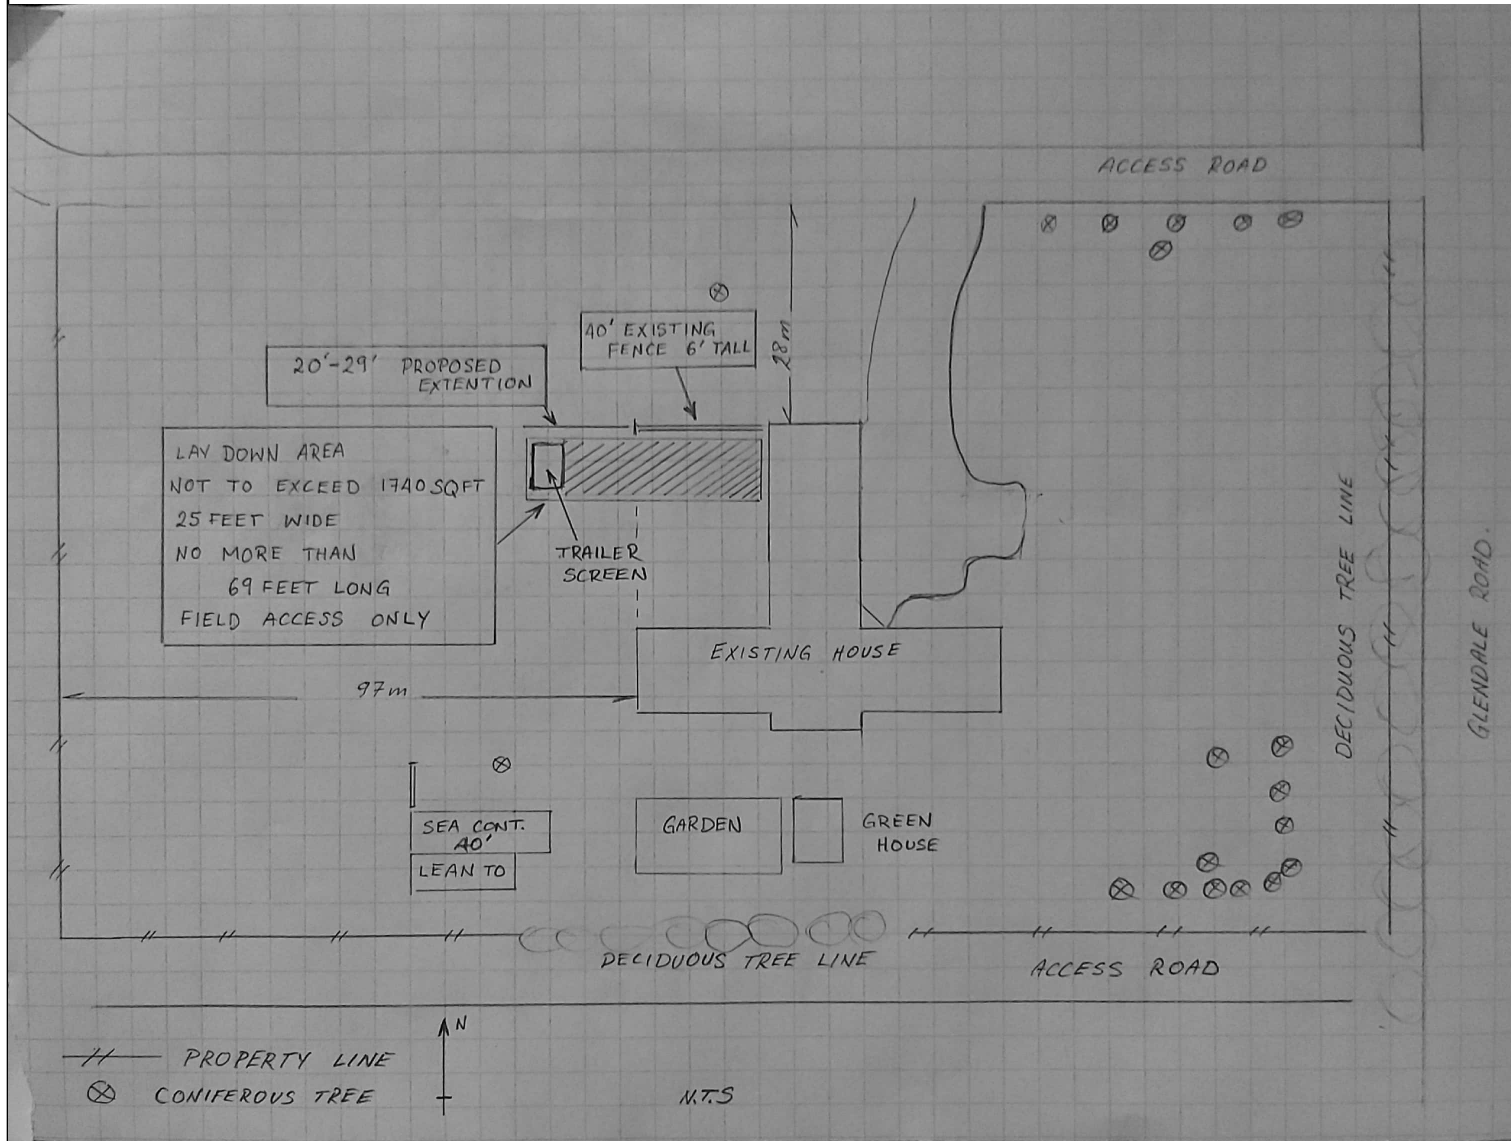 ACCESS ROAD
40' EXISTING
FENCE 6' TALL
28m
20'-29' PROPOSED
EXTENTION
LAY DOWN AREA
NOT TO EXCEED 1740 SQFT
25 FEET WIDE
NO MORE THAN
69 FEET LONG
FIELD ACCESS ONLY
TRAILER
SCREEN
DECIDUOUS TREE LINE
GLENDALE ROAD.
EXISTING HOUSE
97m
SEA CONT.
40'
LEAN TO
GARDEN
GREEN
HOUSE
DECIDUOUS TREE LINE
ACCESS ROAD
N
PROPERTY LINE
CONIFEROUS TREE
N.T.S